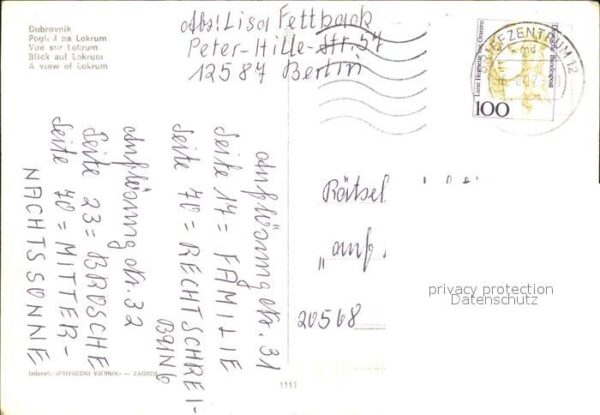 Dubrovnik
Pogled na Lokrum
Vue sur Lokrum
Blick auf Lokrum
A view of Lokrum
Abs: Lisa Fettback
Peter-Hille-Str. 57
12587 Berlin
BRIEFZENTRUM 12
Luise Henriette von Oranien
Deutsche Bundespost
100
Auflösung Nr. 31
Seite 17 = FAMILIE
Seite 70 = RECHTSCHREI-
BUNG
Auflösung Nr. 32
Seite 23 = BROSCHE
Seite 70 = MITTER-
NACHTSSONNE
Rätsel
"auf
20568
privacy protection
Datenschutz
Izdavač: «PRIVREDNI VJESNIK» — ZAGREB